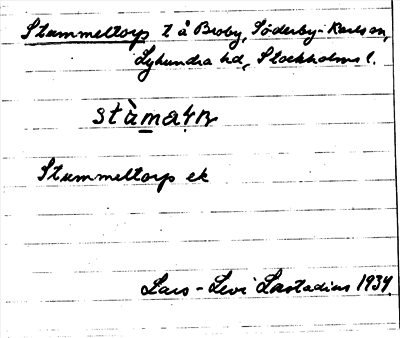 Stammeltorp t å Broby, Söderby-Karlsson,
Lyhundra hd, Stockholms l.
Stammeltorp ek
Lars-Levi Læstadius 1934